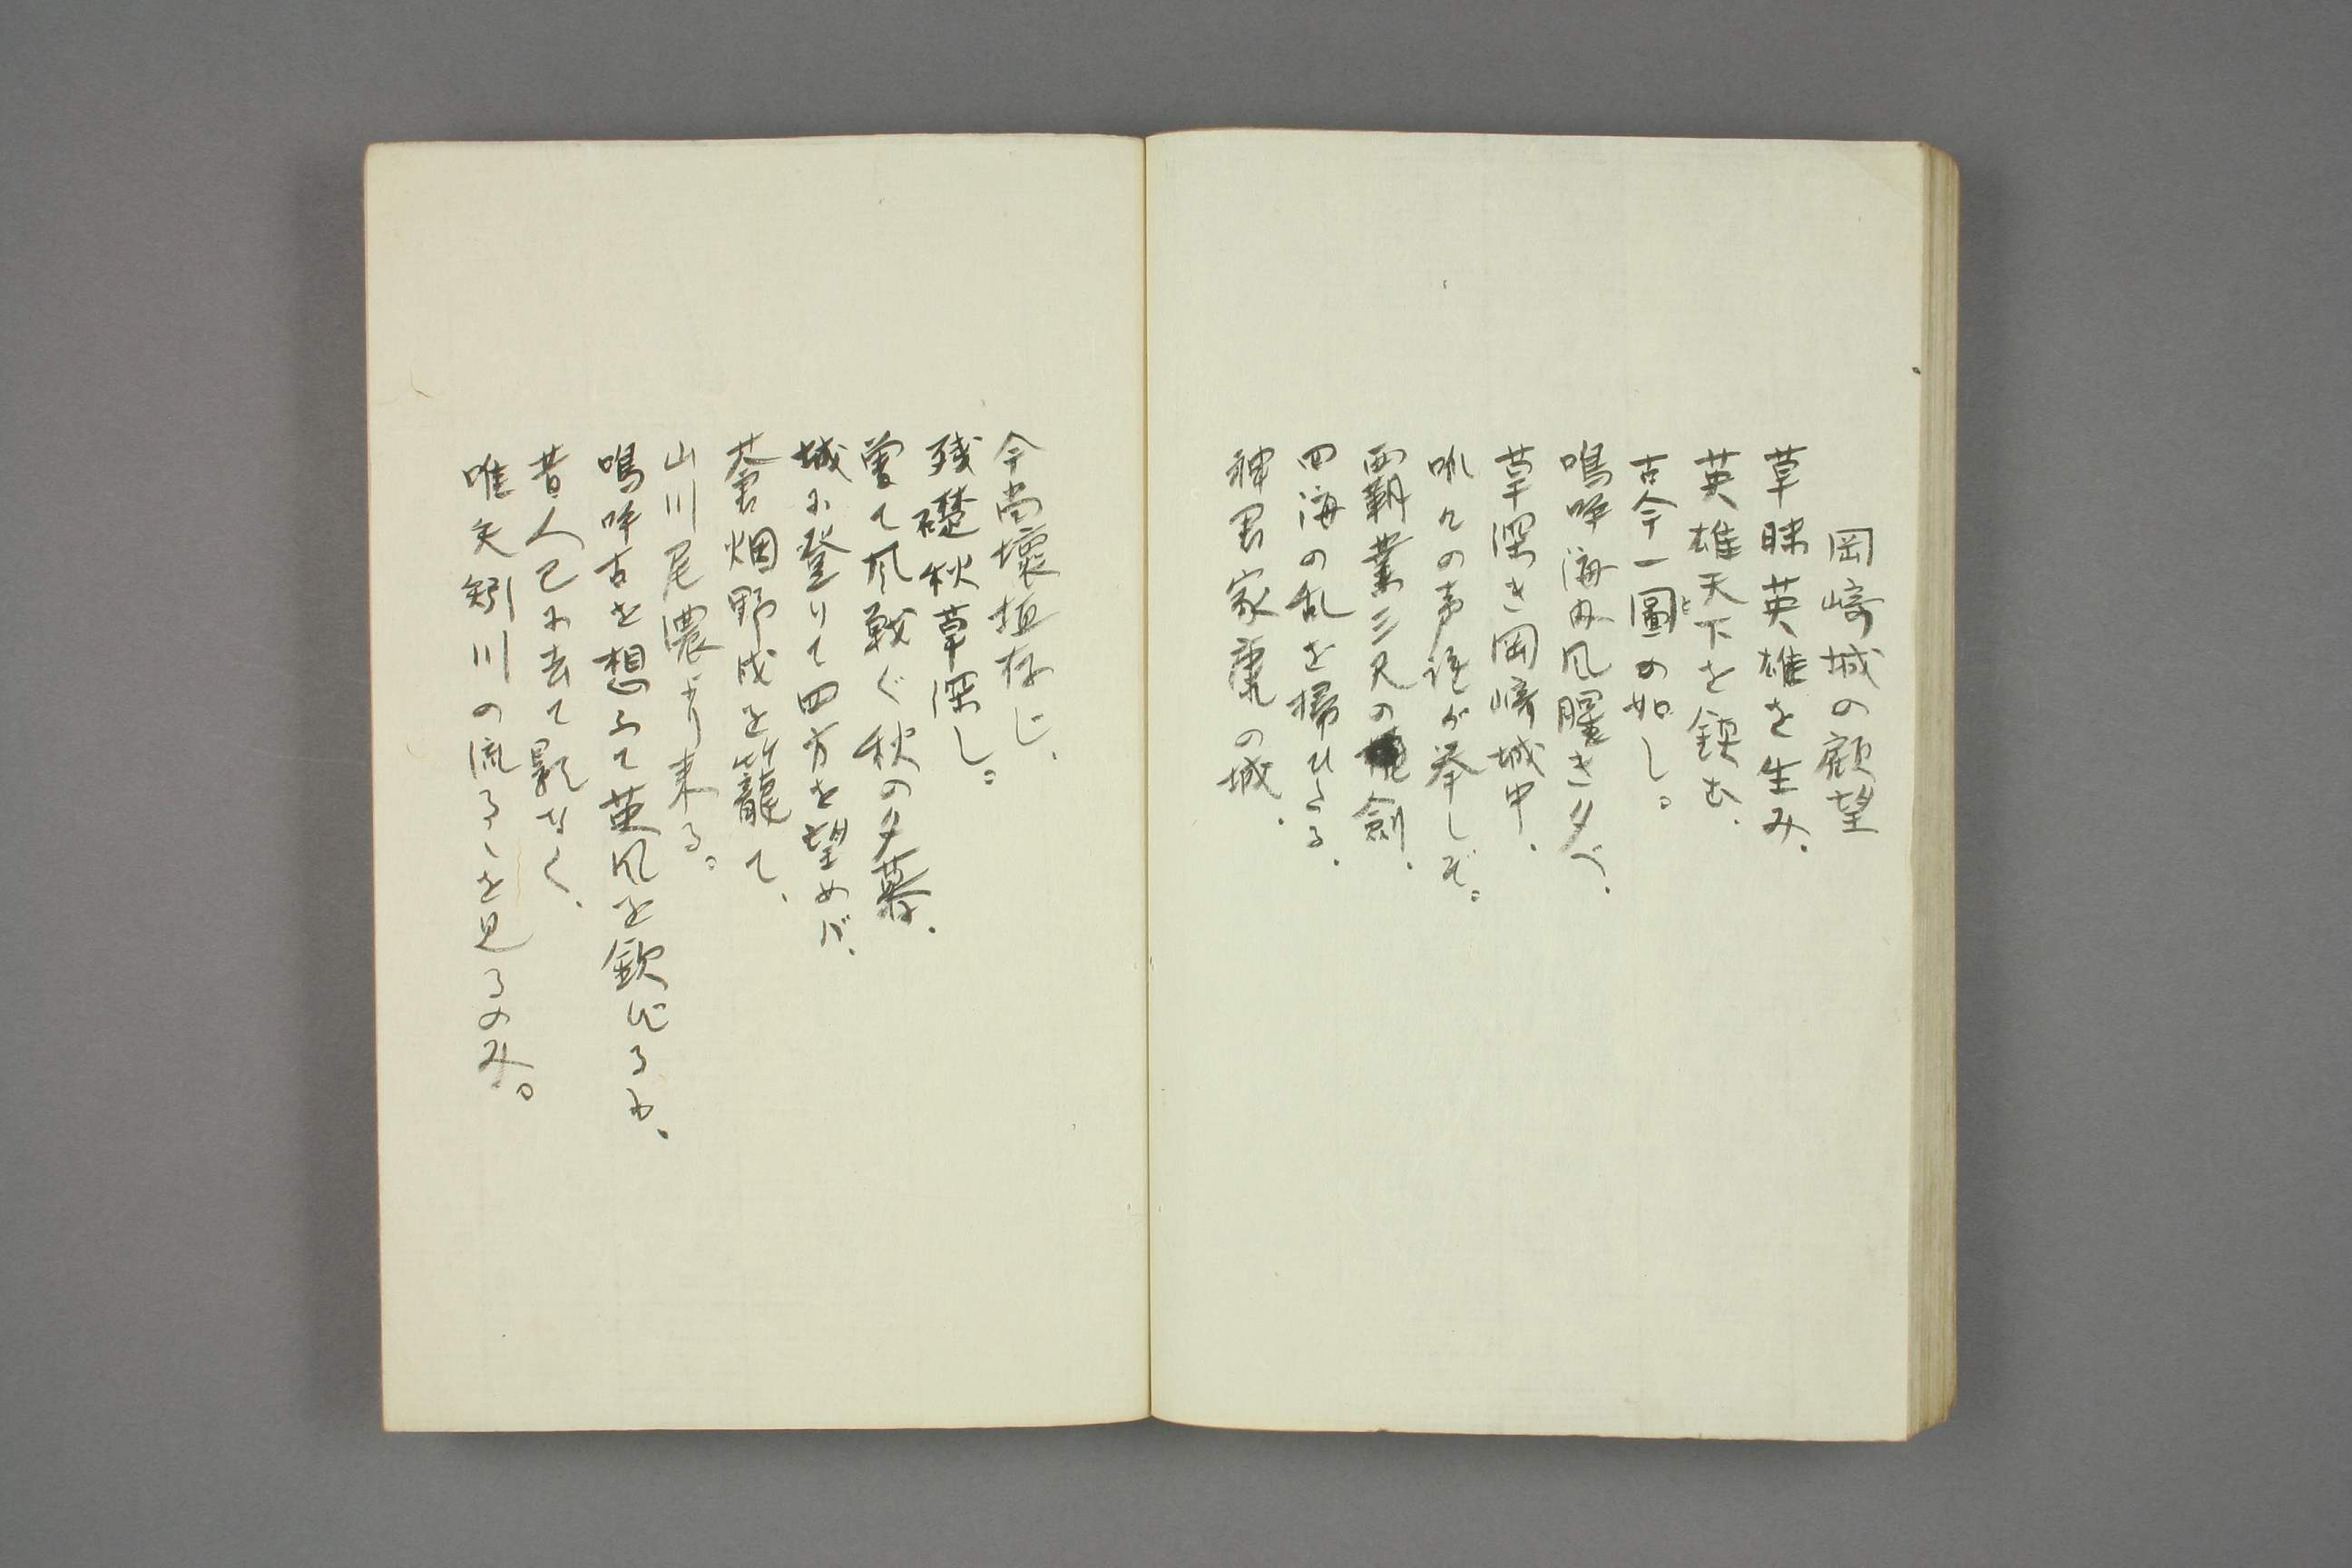 岡崎城の顧望
草昧英雄を生み、
英雄天下を鎮む、
古今一圖と如し。
嗚呼海内風腥き夕べ、
草深き岡崎城中、
呱々の声誰が挙しぞ。
覇業三尺の劍、
四海の乱を掃ひたる、
神君家康の城、
今尚壊垣存じ、
残礎秋草深し。
曾て風戦ぐ秋の夕暮、
城に登りて四方を望めば、
蒼烟野戍を籠て、
山川尾濃より来る。
嗚呼古を想ふて英風を欽ずるも、
昔人已に去て影なく、
唯矢矧川の流るゝを見るのみ。